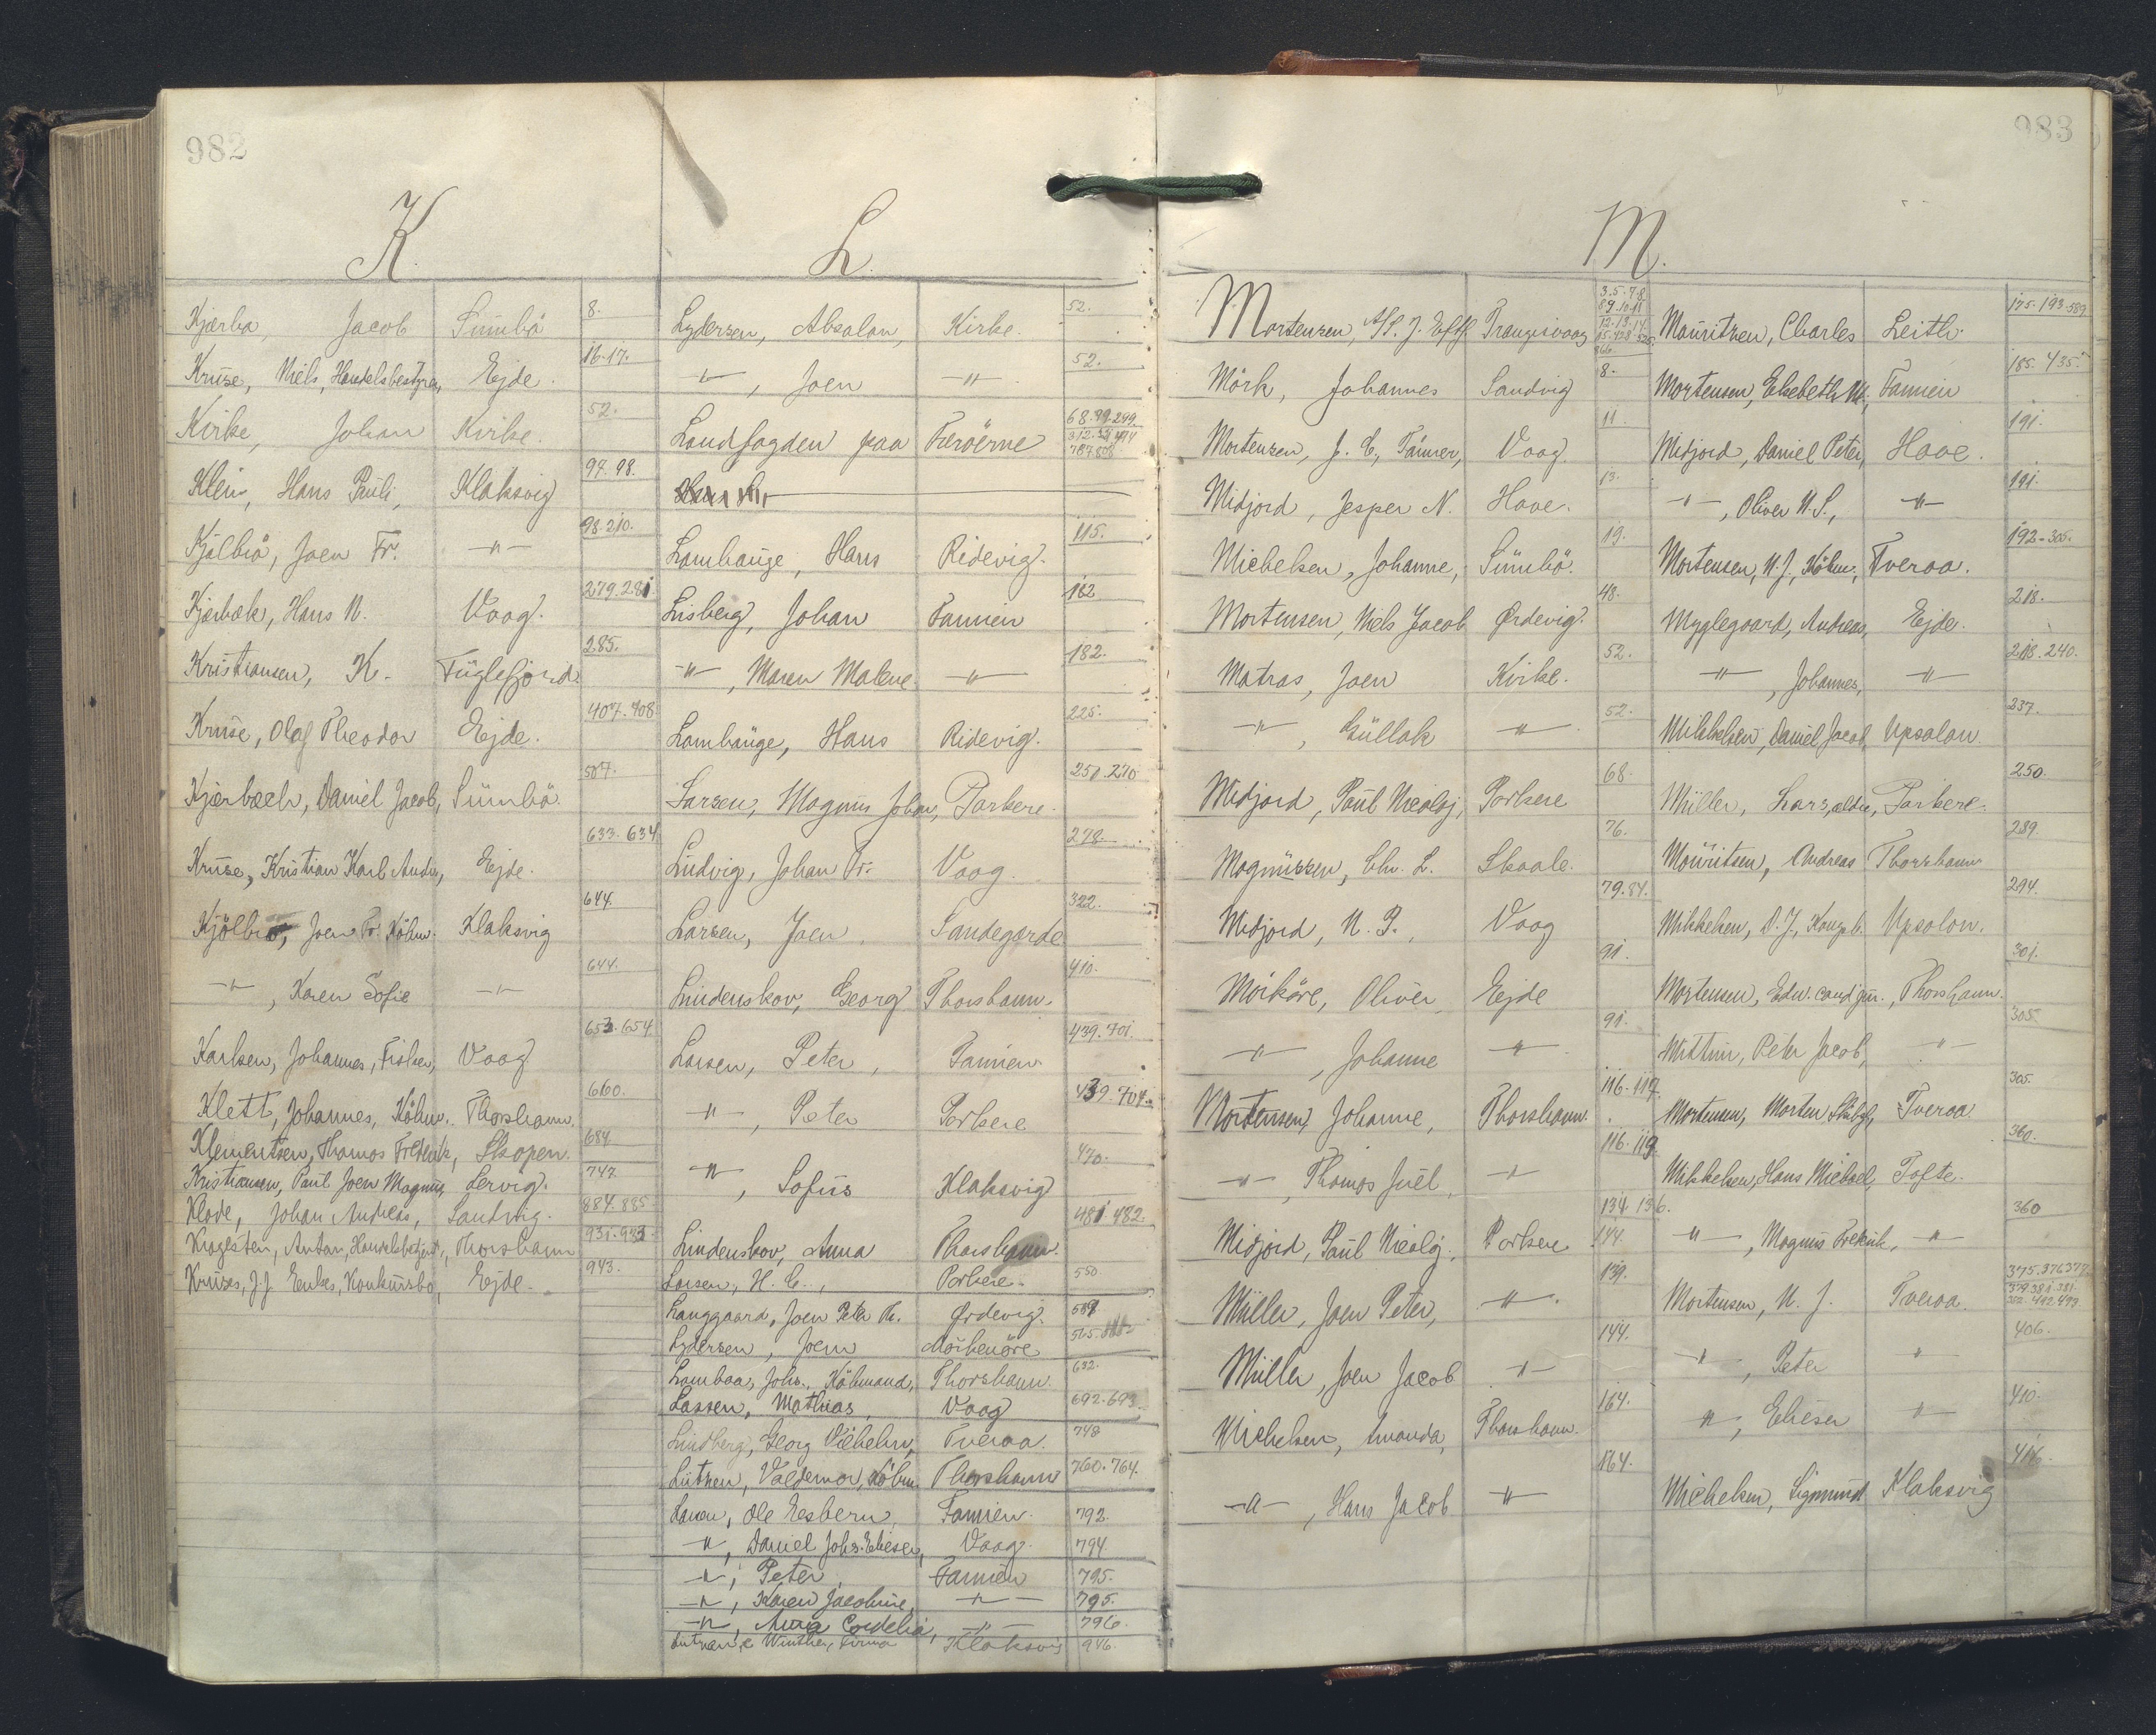 982
K.
Kjærbo, Jacob Sümbö 8.
Krüse, Niels, Handelsbestyrer, Ejde. 16.17.
Kirke, Johan Kirke. 52.
Klein, Hans Pauli, Klaksvig 97.98.
Kjölbrö, Joen Fr. -"- 98.210.
Kjærbæk, Hans N. Vaag. 279.281
Kristiansen, K. Füglefjord. 285.
Krüse, Olaf Theodor Ejde. 407.408
Kjærbæch, Daniel Jacob, Sümbö. 507.
Krüse, Kristian Karl Andr., Ejde. 633.634
Kjölbro, Joen Fr. Köbm. Klaksvig 644.
-"-, Karen Sofie -"- 644.
Karlsen, Johannes, Fisker, Vaag 653.654.
Klett, Johannes, Köbm. Thorshavn. 660.
Klementsen, Thomas Frederik, Skopen. 684.
Kristiansen, Paul Joen Magnus, Lervig. 747.
Klode, Johan Andreas, Sandvig. 884.885.
Kragesten, Anton, Handelsbetjent, Thorshavn 931.933.
Kruses, J.J. Enkes, Konkursbo, Ejde. 943.
L.
Lydersen, Absalon, Kirke. 52.
-"-, Joen -"- 52.
Landfogden paa Færöerne 68.99.299
Lambauge, Hans Ridevig. 115.
Lisberg, Johan Famien 182
-"-, Maren Malene -"- 182.
Lambaüge, Hans Ridevig. 225.
Larsen, Magnus Johan, Porkere. 251.270
Ludvig, Johan Fr. Vaag. 278.
Larsen, Joen, Sandegærde 322.
Lindenskov, Georg Thorshavn. 410.
Larsen, Peter, Famien 439.701.
-"-, Peter Porkere 439.704.
-"-, Sofus Klaksvig 470.
Lindenskov, Anna Thorshavn. 481.482.
Larsen, H. C., Porkere. 550
Langgaard, Joen Peter Ørdevig.
Lydersen, Joen 565.
Lamhaa, Johs., Köbmand, Thorshavn. 632.
Lassen, Mathias, Vaag 692.693.
Lindberg, Georg Vilhelm, Tveraa. 748
Lützen, Valdemar, Köbm. Thorshavn 760.764.
Larsen, Ole Esbern, Famien. 792.
-"-, Daniel Johs. Elieser, Vaag. 794.
-"-, Peter, Famien 795.
-"-, Karen Jacobine, -"- 795.
-"-, Anna Cordelia, -"- 796.
Lützen & Winther, Firma Klaksvig 946.
983
M.
Mortensen, J. Eftf. Trangisvaag 3.5.7.8.
Mörk, Johannes Sandvig 8.
Mortensen, J. C., Famien, Vaag. 11.
Midjord, Jesper N. Hove. 13.
Michelsen, Johanne, Sümbö. 19.
Mortensen, Niels Jacob Ørdevig. 48.
Matras, Joen Kirke. 52.
-"-, Güllak -"- 52.
Midjord, Paul Nicolaj, Porkere 68.
Magnüssen, Chr. L. Skaale. 76.
Midjord, N. P., Vaag 79.84.
Mörköre, Oliver, Ejde 91.
-"-, Johanne -"- 91.
Mortensen, Johanne, Thorshavn. 116.117.
-"-, Thomas Juel, -"- 116.119.
Midjord, Paul Nicolaj, Porkere 134.136. 144.
Müller, Joen Peter, -"- 139.
Müller, Joen Jacob -"- 144.
Michelsen, Amanda, Thorshavn. 164.
-"-, Hans Jacob -"- 164.
Mauritzen, Charles Leith. 175.193.589
Mortensen, Elsebeth M., Famien 185.435.
Midjord, Daniel Peter, Hove. 191.
-"-, Oliver N. S., -"- 191.
Mortensen, N. J., Köbm., Tveraa. 192-305.
Myglegaard, Andreas, Ejde. 218.
-"-, Johannes, -"- 218.240.
Mikkelsen, Daniel Jacob, Upsalon. 237.
Müller, Lars, ældre, Porkere. 250.
Mouritsen, Andreas Thorshavn 289.
Mikkelsen, D. J., Kongsb. Upsalon. 294.
Mortensen, Edw. cand. jur., Thorshavn. 301.
Mittün, Peter Jacob, -"- 305.
Mortensen, Morten, Tveraa 305.
Mikkelsen, Hans Michael, Tofte. 360.
-"-, Magnus Frederik, -"- 360
Mortensen, N. J. Tveraa. 375.376.377.
-"-, Peter -"- 406.
-"-, Elieser -"- 410.
Michelsen, Sigmund Klaksvig 416.